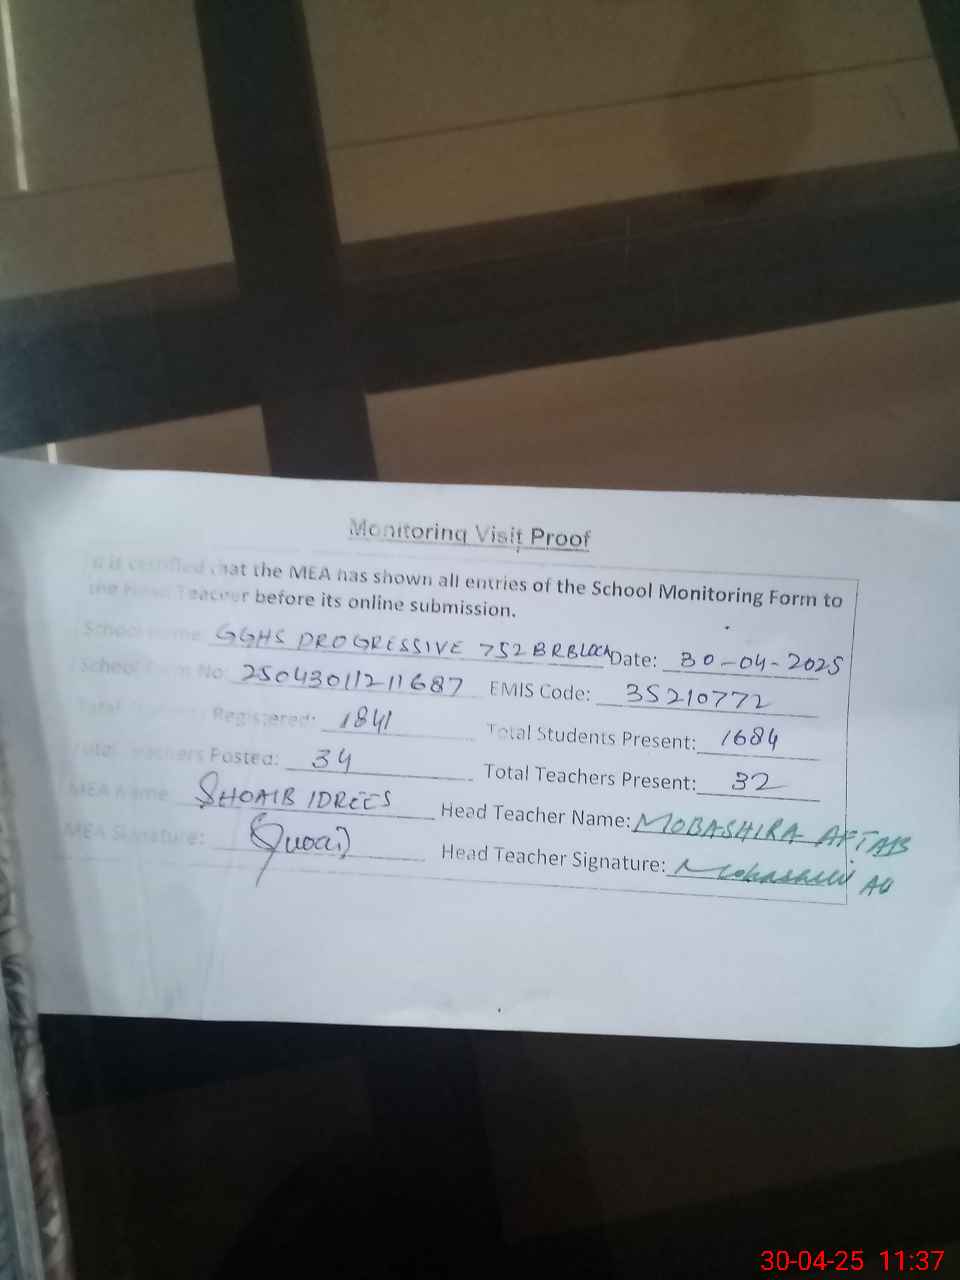 Monitoring Visit Proof
It is certified that the MEA has shown all entries of the School Monitoring Form to
the Head Teacher before its online submission.
School name: GGHS PROGRESSIVE 752 BRBLOCK Date: 30-04-2025
School Form No: 25043011211687 EMIS Code: 35210772
Total Students Registered: 1841 Total Students Present: 1684
Total Teachers Posted: 34 Total Teachers Present: 32
MEA Name: SHOAIB IDREES Head Teacher Name: MOBASHIRA AFTAB
MEA Signature: Head Teacher Signature:
30-04-25 11:37